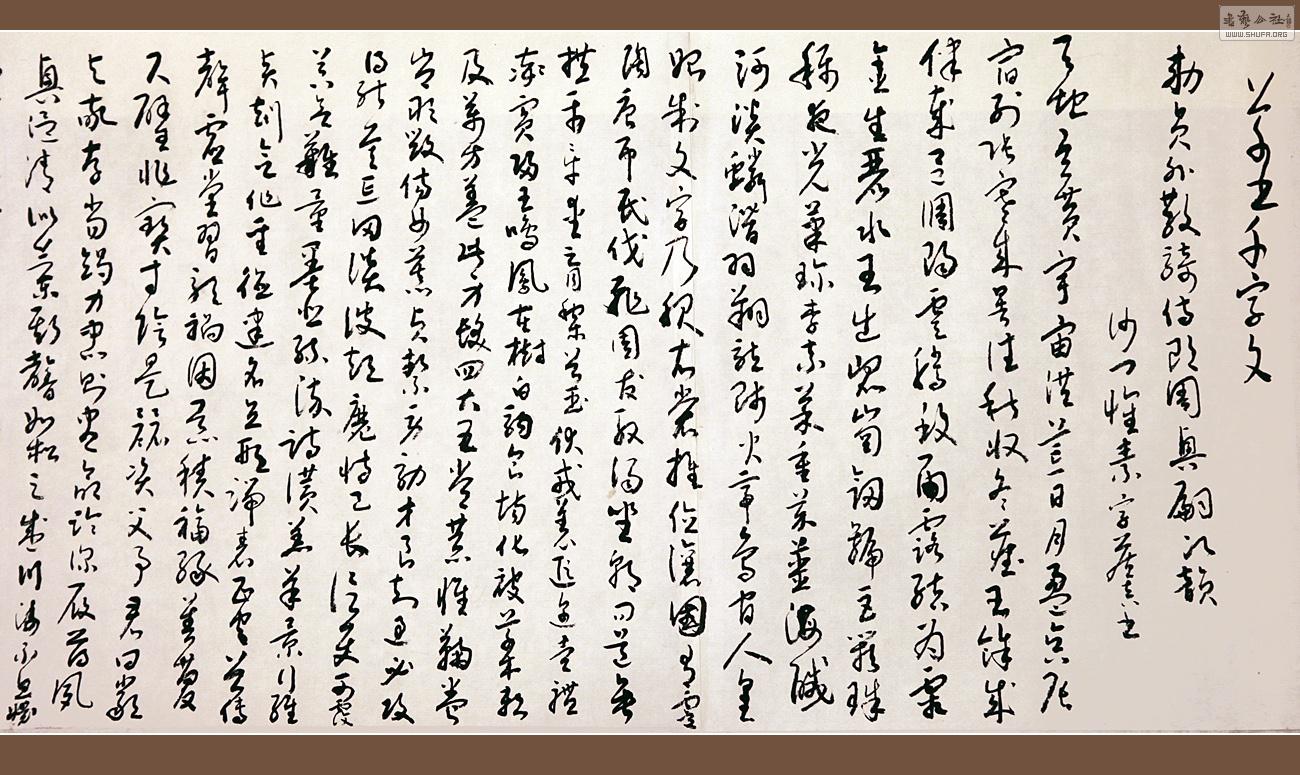 草书千字文
勅員外散騎侍郎周興嗣次韻
沙門懷素字藏真書
天地玄黃宇宙洪荒日月盈昃辰
宿列張寒來暑往秋收冬藏閏餘成
歲律呂調陽雲騰致雨露結為霜
金生麗水玉出崑崗劍號巨闕珠
稱夜光菓珍李柰菜重芥薑海鹹
河淡鱗潛羽翔龍師火帝鳥官人皇
始制文字乃服衣裳推位讓國有虞
陶唐弔民伐罪周發殷湯坐朝問道垂
拱平章愛育黎首臣伏戎羌遐邇壹體
率賓歸王鳴鳳在樹白駒食場化被草木賴
及萬方蓋此身髮四大五常恭惟鞠養
豈敢毀傷女慕貞潔男效才良知過必改
得能莫忘罔談彼短靡恃己長信使可覆
器欲難量墨悲絲染詩讚羔羊景行維
賢剋念作聖德建名立形端表正空谷傳
聲虛堂習聽禍因惡積福緣善慶
尺璧非寶寸陰是競資父事君曰嚴
與敬孝當竭力忠則盡命臨深履薄夙
興溫清似蘭斯馨如松之盛川流不息淵
WWW.SHUFA.ORG